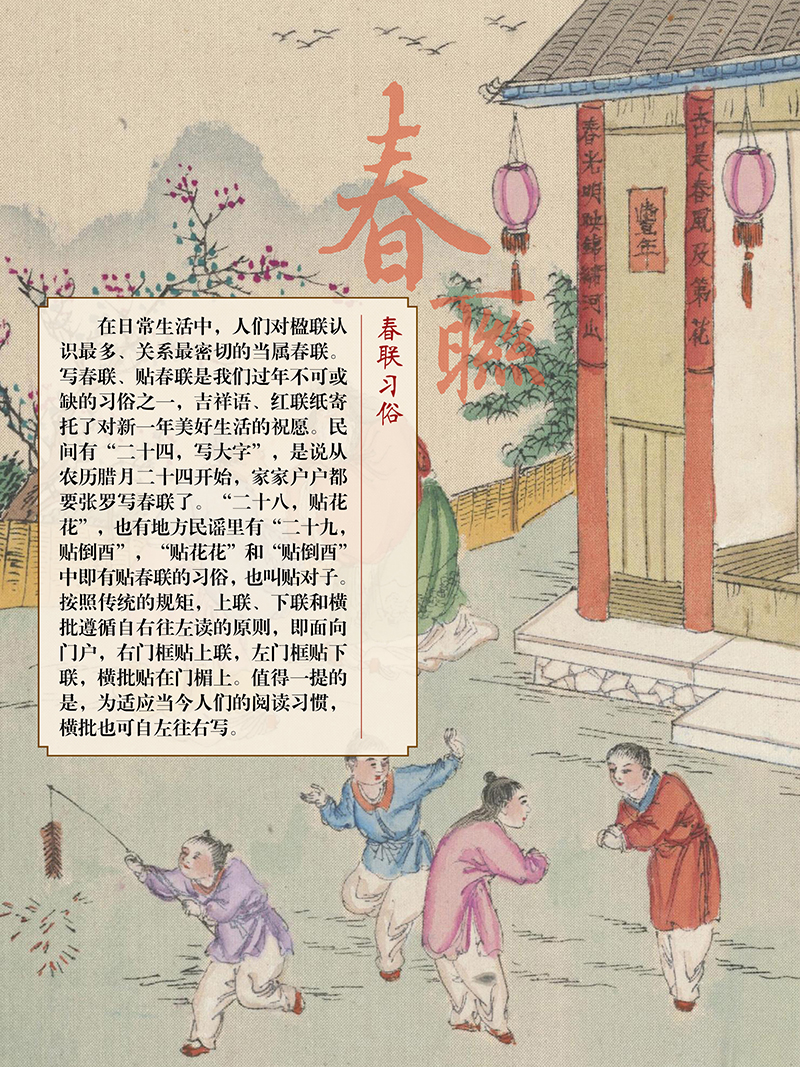 春聯
杏是春風及第花
春光明映錦繡河山
豐年
春联习俗
在日常生活中，人们对楹联认
识最多、关系最密切的当属春联。
写春联、贴春联是我们过年不可或
缺的习俗之一，吉祥语、红联纸寄
托了对新一年美好生活的祝愿。民
间有“二十四，写大字”，是说从
农历腊月二十四开始，家家户户都
要张罗写春联了。“二十八，贴花
花”，也有地方民谣里有“二十九，
贴倒酉”，“贴花花”和“贴倒酉”
中即有贴春联的习俗，也叫贴对子。
按照传统的规矩，上联、下联和横
批遵循自右往左读的原则，即面向
门户，右门框贴上联，左门框贴下
联，横批贴在门楣上。值得一提的
是，为适应当今人们的阅读习惯，
横批也可自左往右写。